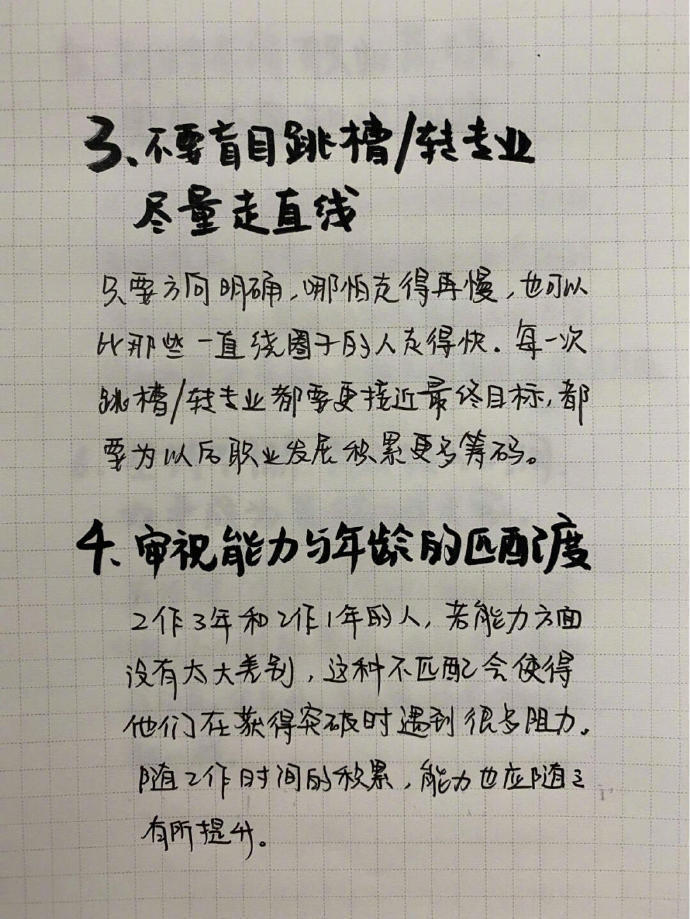 3、不要盲目跳槽/转专业
尽量走直线
只要方向明确，哪怕走得再慢，也可以
比那些一直绕圈子的人走得快。每一次
跳槽/转专业都要更接近最终目标，都
要为以后职业发展积累更多筹码。
4、审视能力与年龄的匹配度
工作3年和工作1年的人，若能力方面
没有太大差别，这种不匹配会使得
他们在获得突破时遇到很多阻力。
随工作时间的积累，能力也应随之
有所提升。